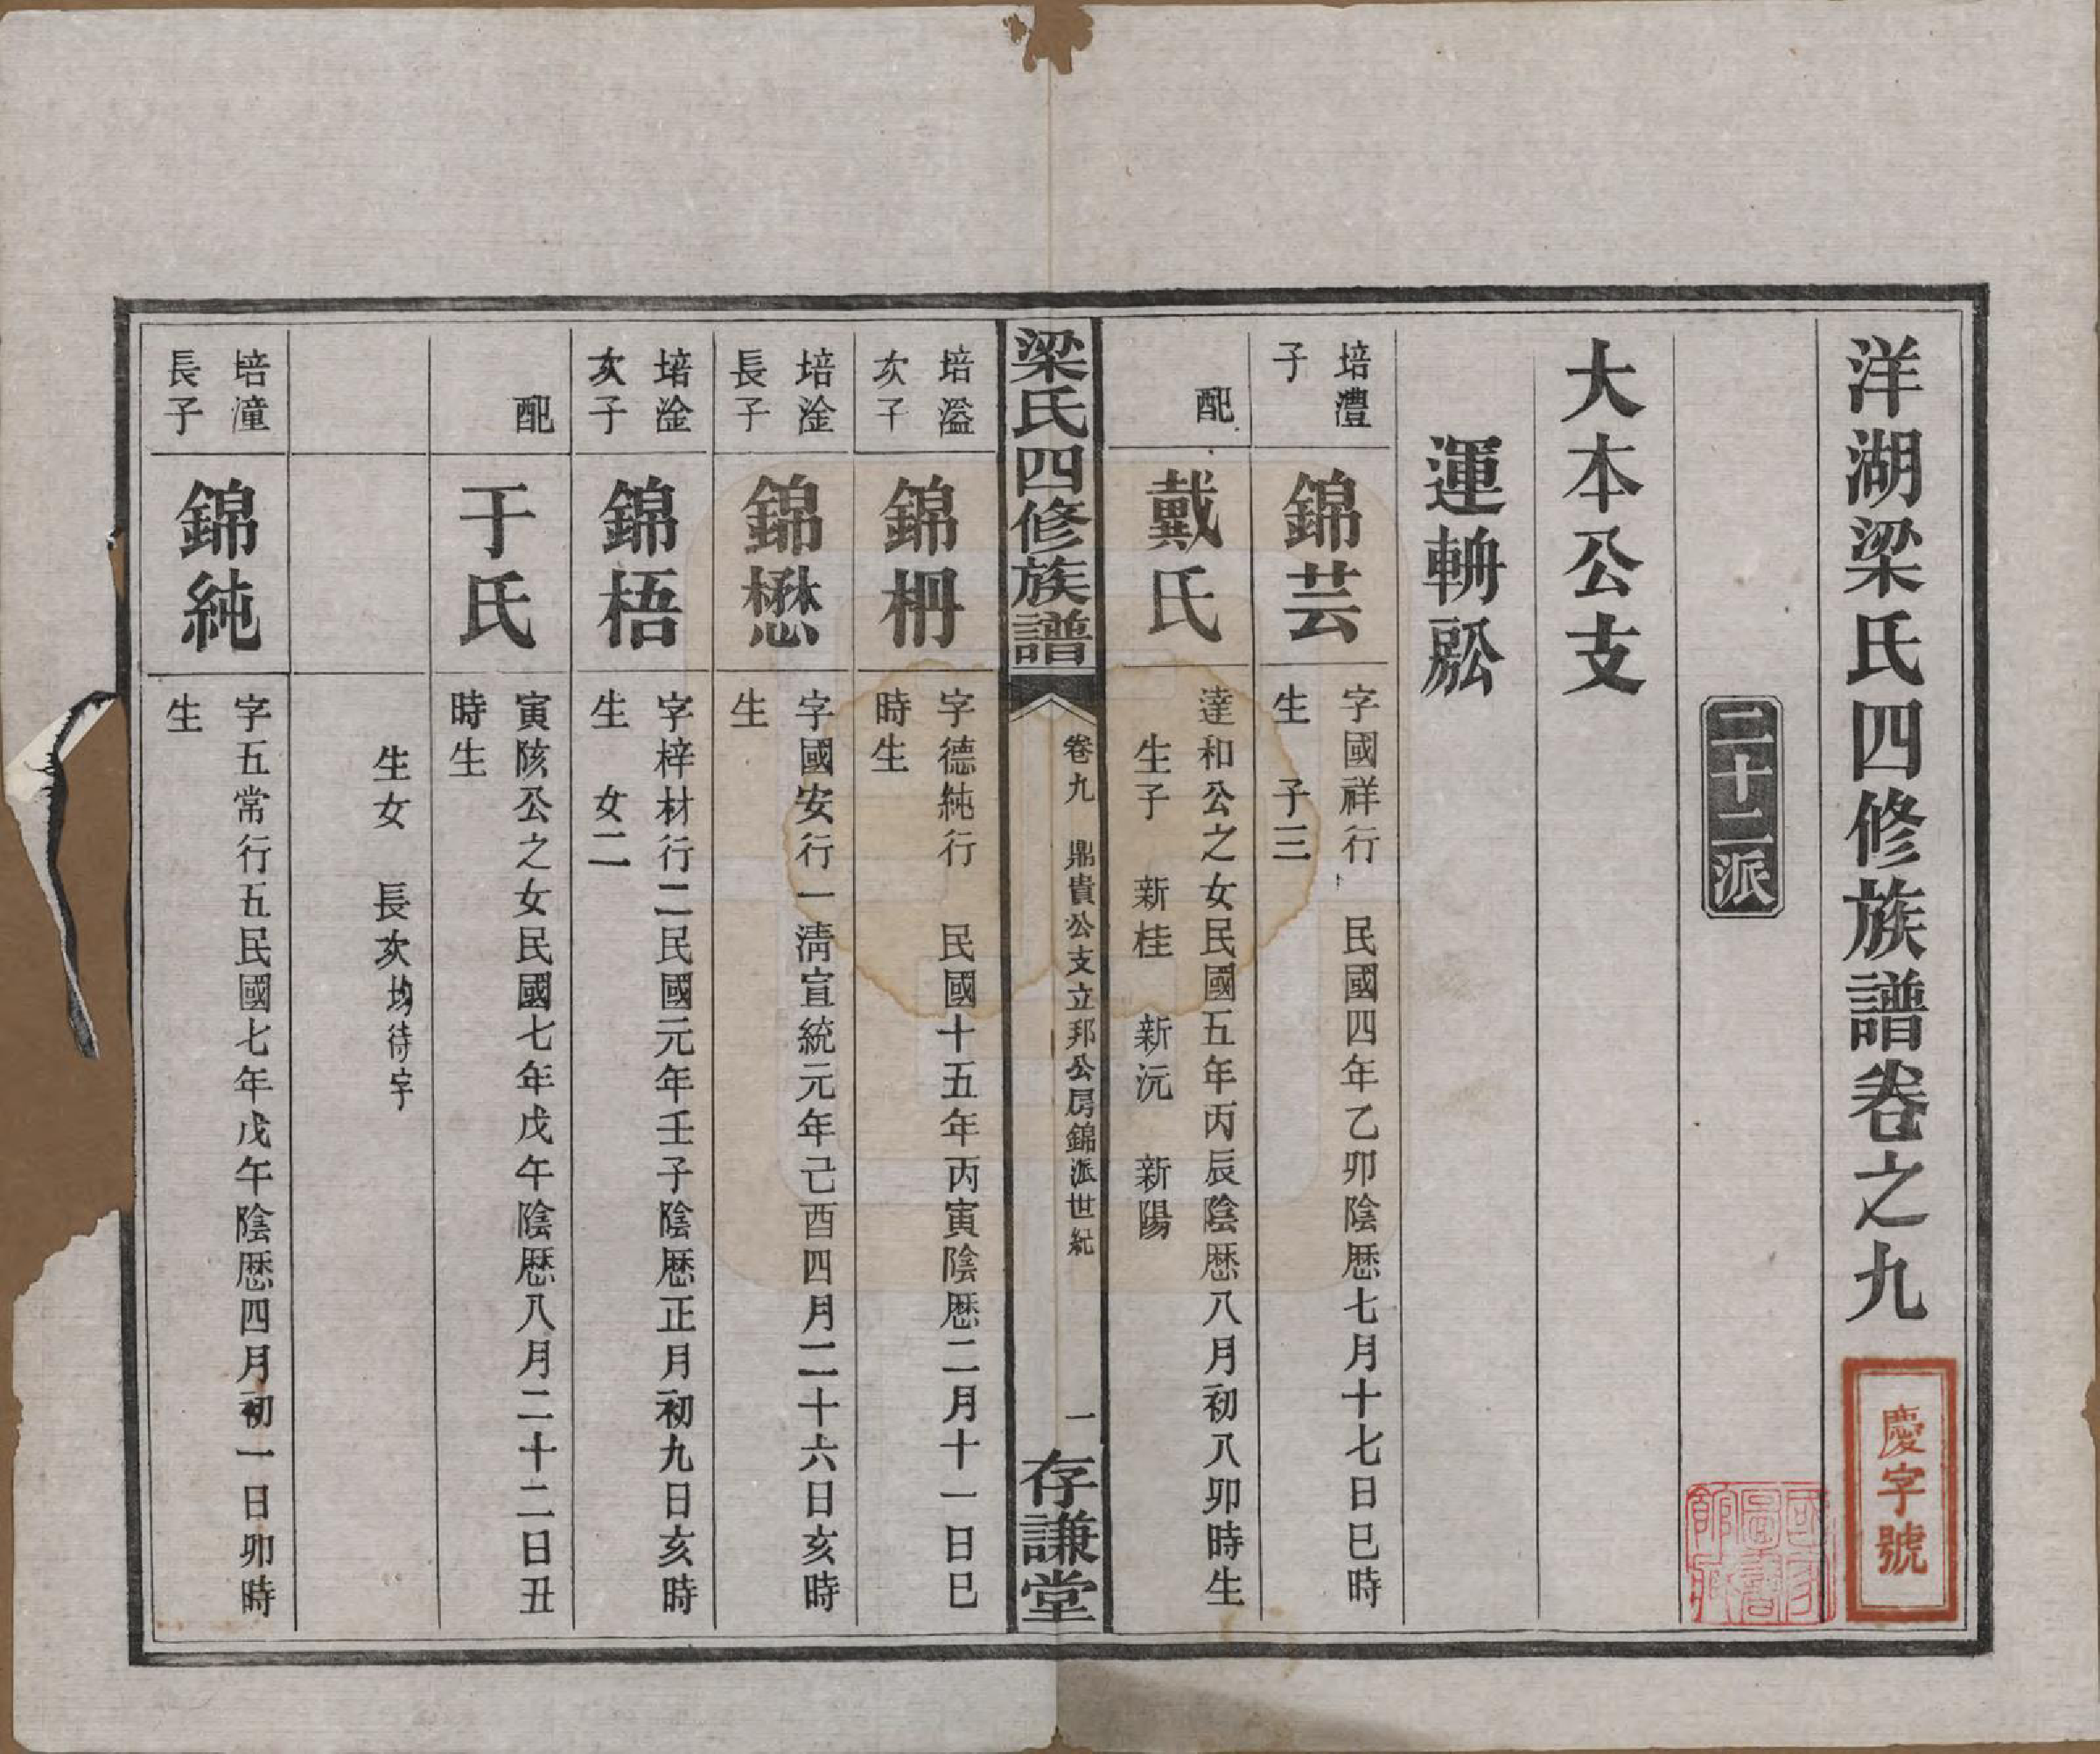 洋湖梁氏四修族譜卷之九
慶字號
二十二派
大本公支
運輈
培澧
子
錦芸
字國祥行 民國四年乙卯陰歷七月十七日巳時
生 子三
配
戴氏
達和公之女民國五年丙辰陰歷八月初八卯時生
生子 新桂 新沅 新陽
梁氏四修族譜
卷九 鼎貴公支立邦公房錦派世紀
一
存謙堂
培溢
次子
錦枬
字德純行 民國十五年丙寅陰歷二月十一日巳
時生
培淦
長子
錦懋
字國安行一清宣統元年己酉四月二十六日亥時
生
培淦
次子
錦梧
字梓材行二民國元年壬子陰歷正月初九日亥時
生 女二
配
于氏
寅陔公之女民國七年戊午陰歷八月二十二日丑
時生
生女 長次均待字
培潼
長子
錦純
字五常行五民國七年戊午陰歷四月初一日卯時
生